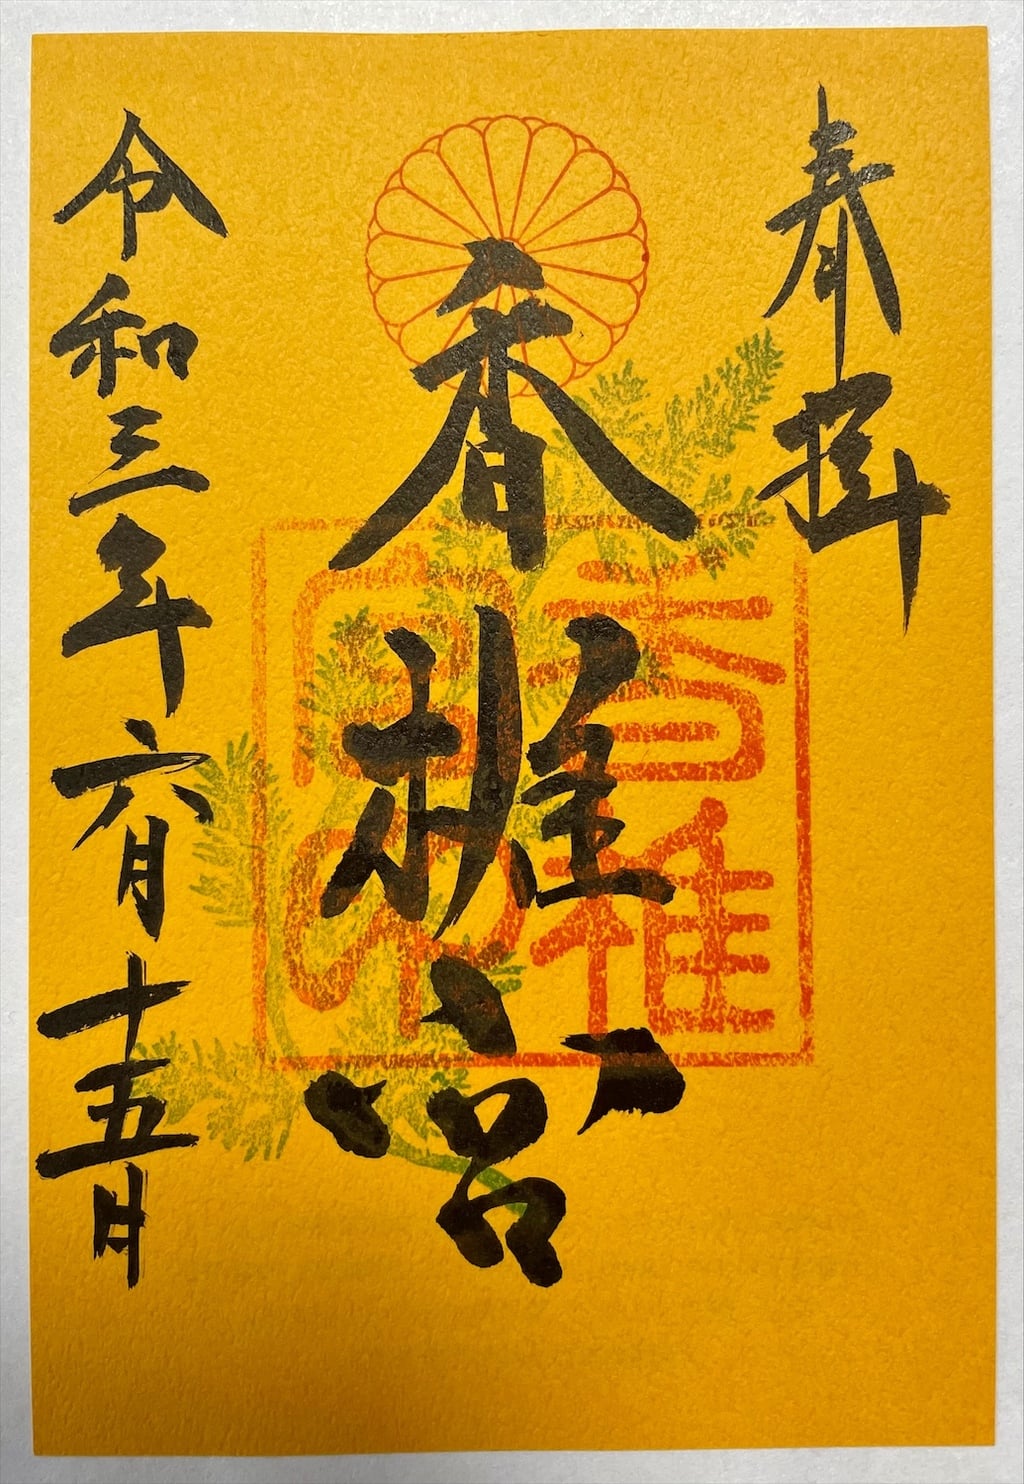 奉拝
香椎宮
香椎宮印
令和三年六月十五日